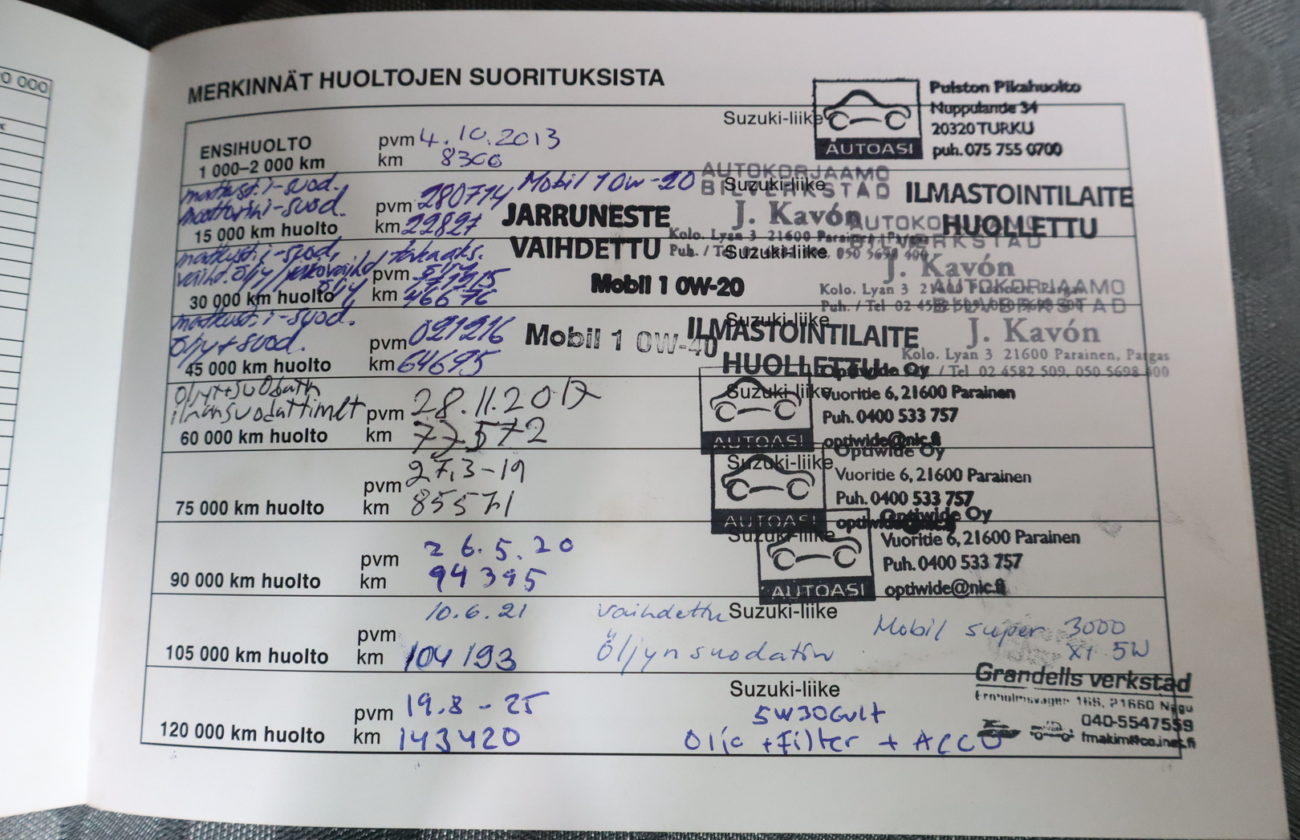 0 000
MERKINNÄT HUOLTOJEN SUORITUKSISTA
ENSIHUOLTO
1 000–2 000 km
pvm 4.10.2013
km 8300
Suzuki-liike
AUTOASI
Pulston Pikahuolto
Nuppulantie 34
20320 TURKU
puh. 075 755 0700
moottorin i-suod.
15 000 km huolto
pvm 280714
km 22827
Mobil 1 0w-20
JARRUNESTE
VAIHDETTU
Suzuki-liike
AUTOKORJAAMO
BILVERKSTAD
J. Kavón
Kolo. Lyan 3 21600 Parainen, Pargas
ILMASTOINTILAITE
HUOLLETTU
30 000 km huolto
pvm
km 46676
Mobil 1 0W-20
Suzuki-liike
J. Kavón
AUTOKORJAAMO
BILVERKSTAD
J. Kavón
Kolo. Lyan 3 21600 Parainen, Pargas
Puh. / Tel 02 4582 509, 050 5698 400
öljy + suod.
45 000 km huolto
pvm 021216
km 64695
Mobil 1 0W-40
ILMASTOINTILAITE
HUOLLETTU
Suzuki-liike
öljyt+suodatin
ilmansuodattimet
60 000 km huolto
pvm 28.11.2017
km 77572
Suzuki-liike
AUTOASI
Optiwide Oy
Vuoritie 6, 21600 Parainen
Puh. 0400 533 757
optiwide@nic.fi
75 000 km huolto
pvm 27.3-19
km 85571
Suzuki-liike
AUTOASI
Optiwide Oy
Vuoritie 6, 21600 Parainen
Puh. 0400 533 757
90 000 km huolto
pvm 26.5.20
km 94395
Suzuki-liike
AUTOASI
Optiwide Oy
Vuoritie 6, 21600 Parainen
Puh. 0400 533 757
optiwide@nic.fi
105 000 km huolto
pvm 10.6.21
km 104193
vaihdettu
öljynsuodatin
Suzuki-liike
Mobil super 3000
X1 5W
120 000 km huolto
pvm 19.8-25
km 143420
Suzuki-liike
5W30 Gult
Olje + Filter + ACCU
Grandells verkstad
040-5547559